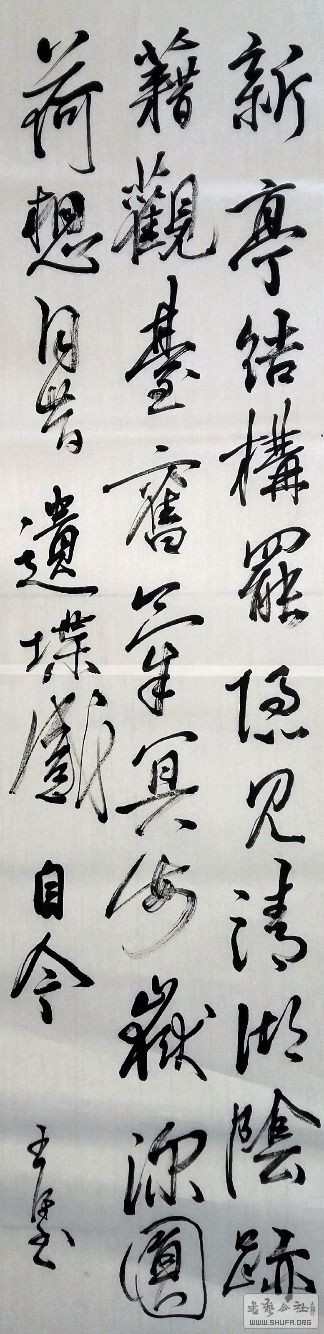 新亭結構罷隱見清湖陰跡
藉觀臺舊氣冥海嶽深圓
荷想自昔遺堞感自今
王
書藝公社
WWW.SHUFA.ORG